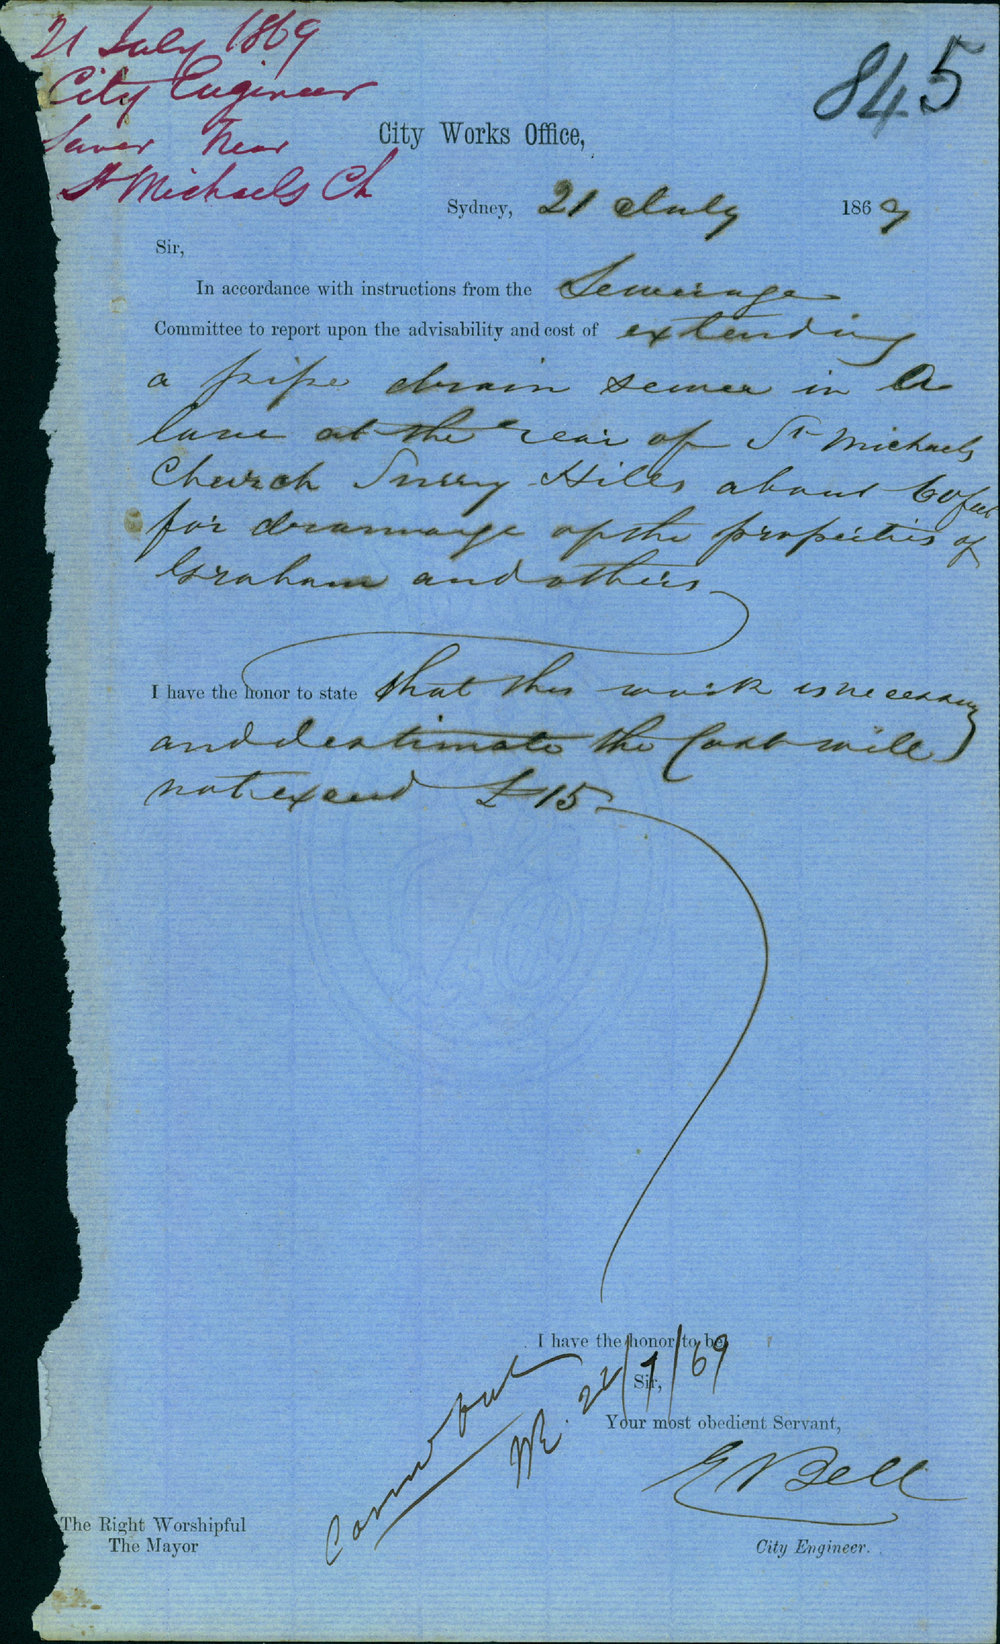 21 July 1869
City Engineer
Sewer Near
St Michaels Ch
845
City Works Office,
Sydney, 21 July 1869
Sir,
In accordance with instructions from the Sewerage
Committee to report upon the advisability and cost of extending
a pipe drain sewer in a
lane at the rear of St Michaels
Church Surry Hills about 60 feet
for drainage of the properties of
Graham and others
I have the honor to state that this work is necessary
and I estimate the Cost will
not exceed £15
I have the honor to be,
Sir,
Your most obedient Servant,
E Bell
City Engineer.
The Right Worshipful
The Mayor
out
22/7/69